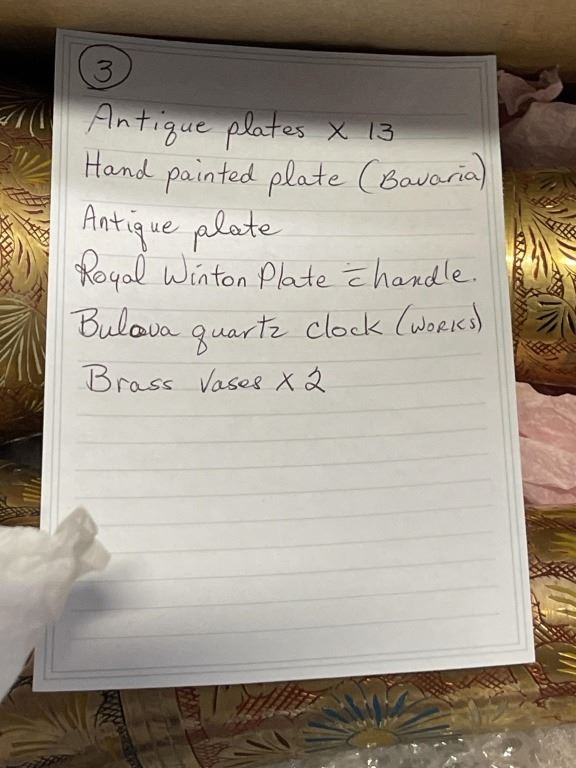 3
Antique plates x 13
Hand painted plate (Bavaria)
Antique plate
Royal Winton Plate c̄ handle.
Bulova quartz clock (WORKS)
Brass Vases x 2